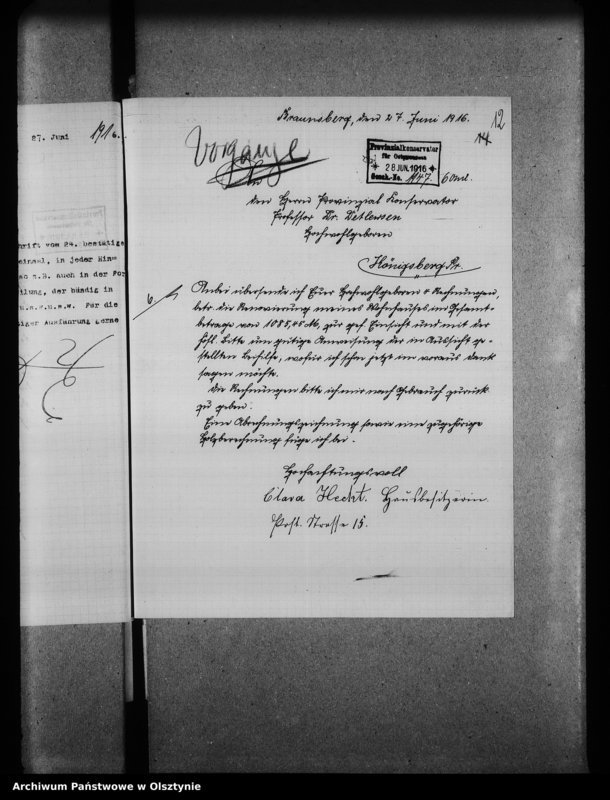 27. Juni 1916.
hrift vom 24. bestätige
einmal, in jeder Hin=
so z.B. auch in der For
ilung, der bündig in
u.s.w.u.s.w. Für die
iger Ausführung gerne
Braunsberg, den 27. Juni 1916.
12
14
Vorgänge
Provinzialkonservator
für Ostpreussen
28 JUN. 1916
Gesch.-No. 1147. 6 Anl.
An
den Herrn Provinzial Konservator
Professor Dr. Detlefsen
Hochwohlgeboren
Königsberg Pr.
6
Anbei übersende ich Euer Hochwohlgeboren Rechnungen,
betr. die Renovierung meines Wohnhauses im Gesamt-
betrage von 1085,05 M, zur gef. Einsicht und mit der
höfl. Bitte um gütige Anweisung der in Aussicht ge-
stellten Beihilfe, wofür ich schon jetzt im voraus dank
sagen möchte.
Die Rechnungen bitte ich mir nach Gebrauch zurück
zu geben.
Eine Abrechnungszeichnung sowie eine zugehörige
Holzberechnung füge ich bei.
Hochachtungsvoll
Clara Hecht. Hausbesitzerin.
Post. Strasse 15.
Archiwum Państwowe w Olsztynie